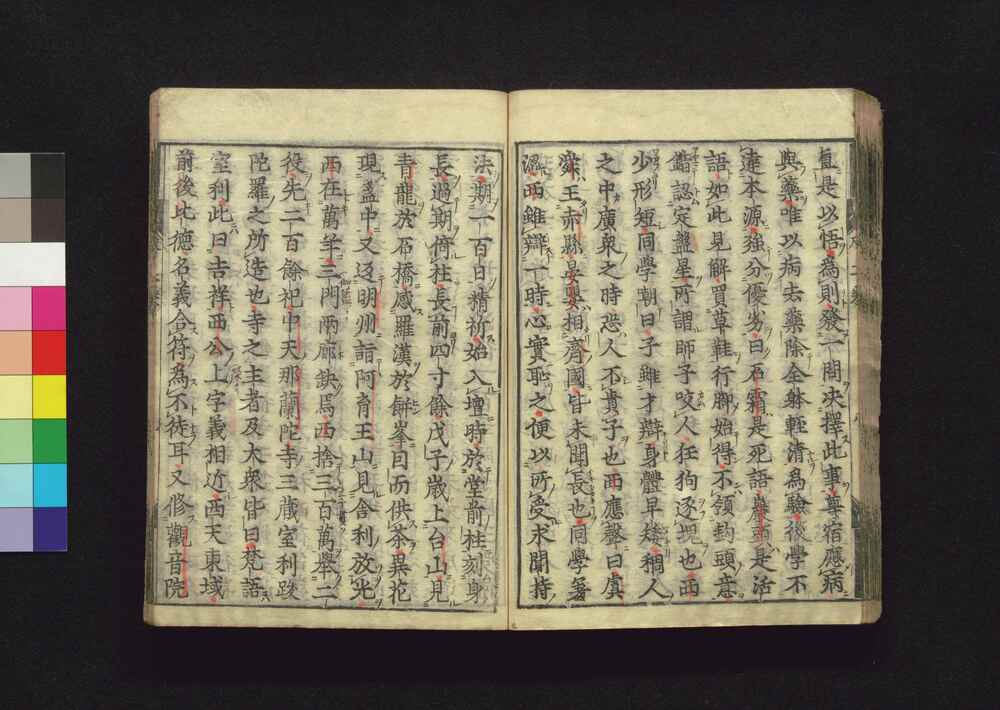 直是以悟爲則發一問決擇此事尊宿應病
與藥唯以病去藥除全躰輕清爲驗後學不
違本源強分優劣曰石霜是死語嵒頭是活
語如此見解買草鞋行脚始得不領鉤頭意
錯認定盤星所謂師子咬人狂狗逐塊也西
少形短同學嘲曰子雖才辯身體早矮稠人
之中廣衆之時恐人不貴子也西應聲曰虞
舜王赤縣晏嬰相齊國皆未聞長也同學箸
濕西雖辯一時心實恥之便以所受求聞持
法期一百日精祈始入壇時於堂前柱刻身
長過期倚柱長前四寸餘戊子歲上台山見
青龍於石橋感羅漢於餅峯因而供茶異花
現盞中又返明州詣阿育王山見舍利放光
西在萬年三門兩廊缺焉西捨三百萬舉二
役先二百餘祀中天那蘭陀寺三藏室利跋
陀羅之所造也寺之主者及大衆皆曰梵語
室利此曰吉祥西公上字義相近西天東域
前後比德名義合符爲不徒耳又修觀音院